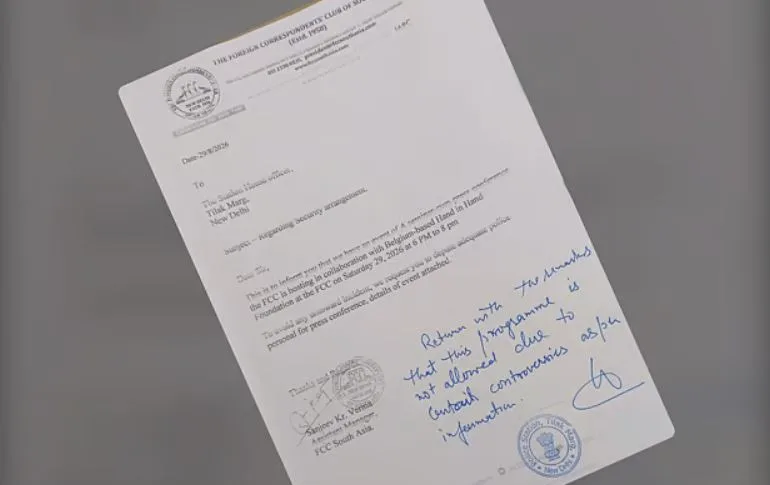 THE FOREIGN CORRESPONDENTS' CLUB OF SOU
(Estd. 1958)
www.fccsouthasia.com
FCC
NEW DELHI
Date-29/8/2026
To
The Station House officer,
Tilak Marg,
New Delhi
Subject – Regarding Security arrangement,
Dear Sir,
This is to inform you that we have an event of A seminar cum press conference
the FCC is hosting in collaboration with Belgium-based Hand in Hand
Foundation at the FCC on Saturday 29, 2026 at 6 PM to 8 pm
To avoid any untoward incident, we request you to depute adequate police
personal for press conference, details of event attached.
Thanks and
Sanjeev Kr. Verma
Assistant Manager,
FCC South Asia.
Return with the remarks
that this programme is
not allowed due to
certain controversies as per
information.
Police Station, Tilak Marg,
New Delhi